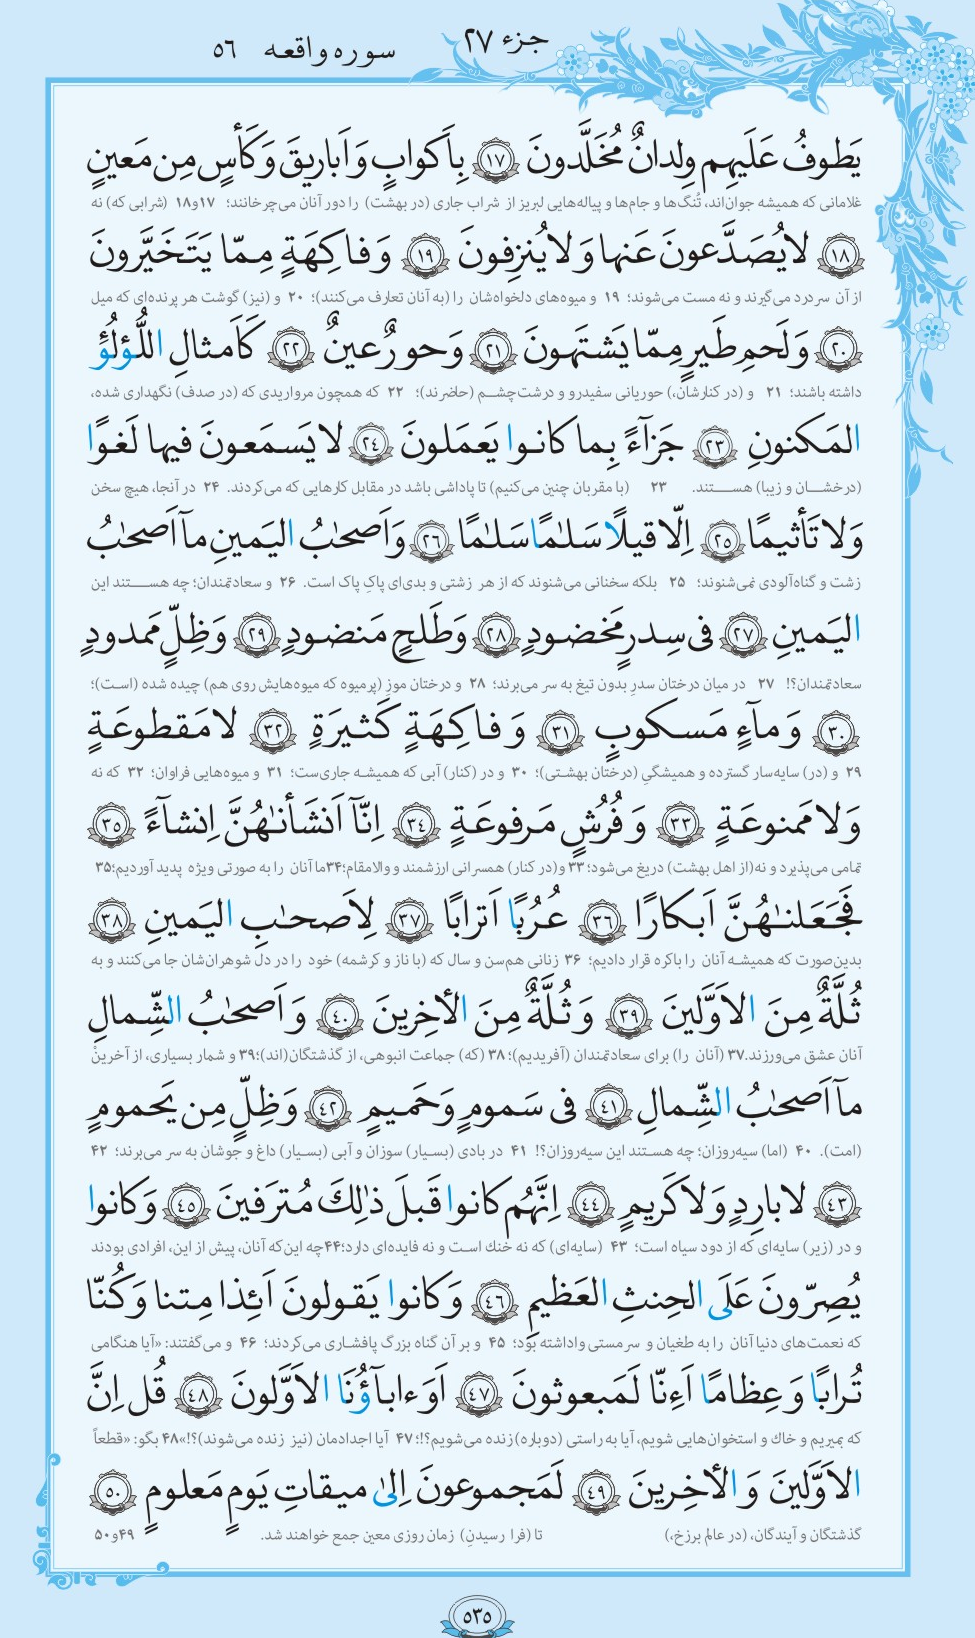 جزء ۲۷
سوره واقعه ۵۶
يَطوفُ عَلَيهِم وِلدانٌ مُخَلَّدونَ ﴿١٧﴾ بِأَكوابٍ وَ اَباريقَ وَ كَأسٍ مِن مَعينٍ
غلامانی که همیشه جوان‌اند، تُنگ‌ها و جام‌ها و پیاله‌هایی لبریز از شراب جاری (در بهشت) را دور آنان می‌چرخانند؛ ۱۷و۱۸ (شرابی که) نه
﴿١٨﴾ لا يُصَدَّعونَ عَنها وَ لا يُنزِفونَ ﴿١٩﴾ وَ فاكِهَةٍ مِمّا يَتَخَيَّرونَ
از آن سردرد می‌گیرند و نه مست می‌شوند؛ ۱۹ و میوه‌های دلخواه‌شان را (به آنان تعارف می‌کنند)؛ ۲۰ و (نیز) گوشت هر پرنده‌ای که میل
﴿٢٠﴾ وَ لَحمِ طَيرٍ مِمّا يَشتَهونَ ﴿٢١﴾ وَ حورٌ عينٌ ﴿٢٢﴾ كَاَمثالِ اللُّؤلُؤِ
داشته باشند؛ ۲۱ و (در کنارشان،) حوریانی سفیدرو و درشت‌چشم (حاضرند)؛ ۲۲ که همچون مرواریدی که (در صدف) نگهداری شده،
المَكنونِ ﴿٢٣﴾ جَزآءً بِما كانوا يَعمَلونَ ﴿٢٤﴾ لا يَسمَعونَ فيها لَغوًا
(درخشان و زیبا) هستند. ۲۳ (با مقربان چنین می‌کنیم) تا پاداشی باشد در مقابل کارهایی که می‌کردند. ۲۴ در آنجا، هیچ سخن
وَ لا تَأثيمًا ﴿٢٥﴾ اِلّا قيلًا سَلٰمًا سَلٰمًا ﴿٢٦﴾ وَ اَصحٰبُ اليَمينِ مآ اَصحٰبُ
زشت و گناه‌آلودی نمی‌شنوند؛ ۲۵ بلکه سخنانی می‌شنوند که از هر زشتی و بدی‌ای پاکِ پاک است. ۲۶ و سعادتمندان؛ چه هستند این
اليَمينِ ﴿٢٧﴾ فى سِدرٍ مَخضودٍ ﴿٢٨﴾ وَ طَلحٍ مَنضودٍ ﴿٢٩﴾ وَ ظِلٍّ مَمدودٍ
سعادتمندان؟! ۲۷ در میان درختان سدرِ بدون تیغ به سر می‌برند؛ ۲۸ و درختان موزِ (پرمیوه که میوه‌هایش روی هم) چیده شده (است)؛
﴿٣٠﴾ وَ مآءٍ مَسكوبٍ ﴿٣١﴾ وَ فاكِهَةٍ كَثيرَةٍ ﴿٣٢﴾ لا مَقطوعَةٍ
۲۹ و (در) سایه‌سار گسترده و همیشگیِ (درختان بهشتی)؛ ۳۰ و در (کنار) آبی که همیشه جاری‌ست؛ ۳۱ و میوه‌هایی فراوان؛ ۳۲ که نه
وَ لا مَمنوعَةٍ ﴿٣٣﴾ وَ فُرُشٍ مَرفوعَةٍ ﴿٣٤﴾ اِنّآ اَنشَأنٰهُنَّ اِنشآءً ﴿٣٥﴾
تمامی می‌پذیرد و نه(از اهل بهشت) دریغ می‌شود؛۳۳ و(در کنار) همسرانی ارزشمند و والامقام؛۳۴ما آنان را به صورتی ویژه پدید آوردیم؛۳۵
فَجَعَلنٰهُنَّ اَبكارًا ﴿٣٦﴾ عُرُبًا اَترابًا ﴿٣٧﴾ لِاَصحٰبِ اليَمينِ ﴿٣٨﴾
بدین‌صورت که همیشه آنان را باکره قرار دادیم؛ ۳۶ زنانی هم‌سن و سال که (با ناز و کرشمه) خود را در دل شوهران‌شان جا می‌کنند و به
ثُلَّةٌ مِنَ الاَوَّلينَ ﴿٣٩﴾ وَ ثُلَّةٌ مِنَ الأخِرينَ ﴿٤٠﴾ وَ اَصحٰبُ الشِّمالِ
آنان عشق می‌ورزند.۳۷ (آنان را) برای سعادتمندان (آفریدیم)؛ ۳۸ (که) جماعت انبوهی، از گذشتگان(اند)؛۳۹ و شمار بسیاری، از آخرینْ
مآ اَصحٰبُ الشِّمالِ ﴿٤١﴾ فى سَمومٍ وَ حَميمٍ ﴿٤٢﴾ وَ ظِلٍّ مِن يَحمومٍ
(امت). ۴۰ (اما) سیه‌روزان؛ چه هستند این سیه‌روزان؟! ۴۱ در بادی (بسیار) سوزان و آبی (بسیار) داغ و جوشان به سر می‌برند؛ ۴۲
﴿٤٣﴾ لا بارِدٍ وَ لا كَريمٍ ﴿٤٤﴾ اِنَّهُم كانوا قَبلَ ذٰلِكَ مُترَفينَ ﴿٤٥﴾ وَ كانوا
و در (زیر) سایه‌ای که از دود سیاه است؛ ۴۳ (سایه‌ای) که نه خنك است و نه فایده‌ای دارد؛۴۴چه این‌که آنان، پیش از این، افرادی بودند
يُصِرّونَ عَلَى الحِنثِ العَظيمِ ﴿٤٦﴾ وَ كانوا يَقولونَ اَئِذا مِتنا وَ كُنّا
که نعمت‌های دنیا آنان را به طغیان و سرمستی واداشته بود؛ ۴۵ و بر آن گناه بزرگ پافشاری می‌کردند؛ ۴۶ و می‌گفتند: «آیا هنگامی
تُرابًا وَ عِظامًا اَءِنّا لَمَبعوثونَ ﴿٤٧﴾ اَوَ ءابآؤُنَا الاَوَّلونَ ﴿٤٨﴾ قُل اِنَّ
که بمیریم و خاك و استخوان‌هایی شویم، آیا به راستی (دوباره)زنده می‌شویم؟!؛ ۴۷ آیا اجدادمان (نیز زنده می‌شوند)؟!»۴۸ بگو: «قطعاً
الاَوَّلينَ وَ الأخِرينَ ﴿٤٩﴾ لَمَجموعونَ اِلىٰ ميقاتِ يَومٍ مَعلومٍ ﴿٥٠﴾
گذشتگان و آیندگان، (در عالم برزخ،) تا (فرا رسیدنِ) زمان روزی معین جمع خواهند شد. ۴۹و۵۰
۵۳۵